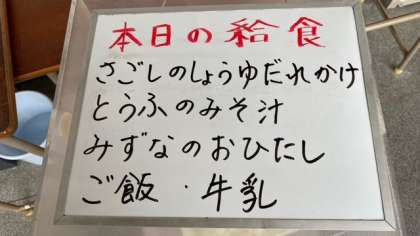 本日の給食
さごしのしょうゆだれかけ
とうふのみそ汁
みずなのおひたし
ご飯・牛乳